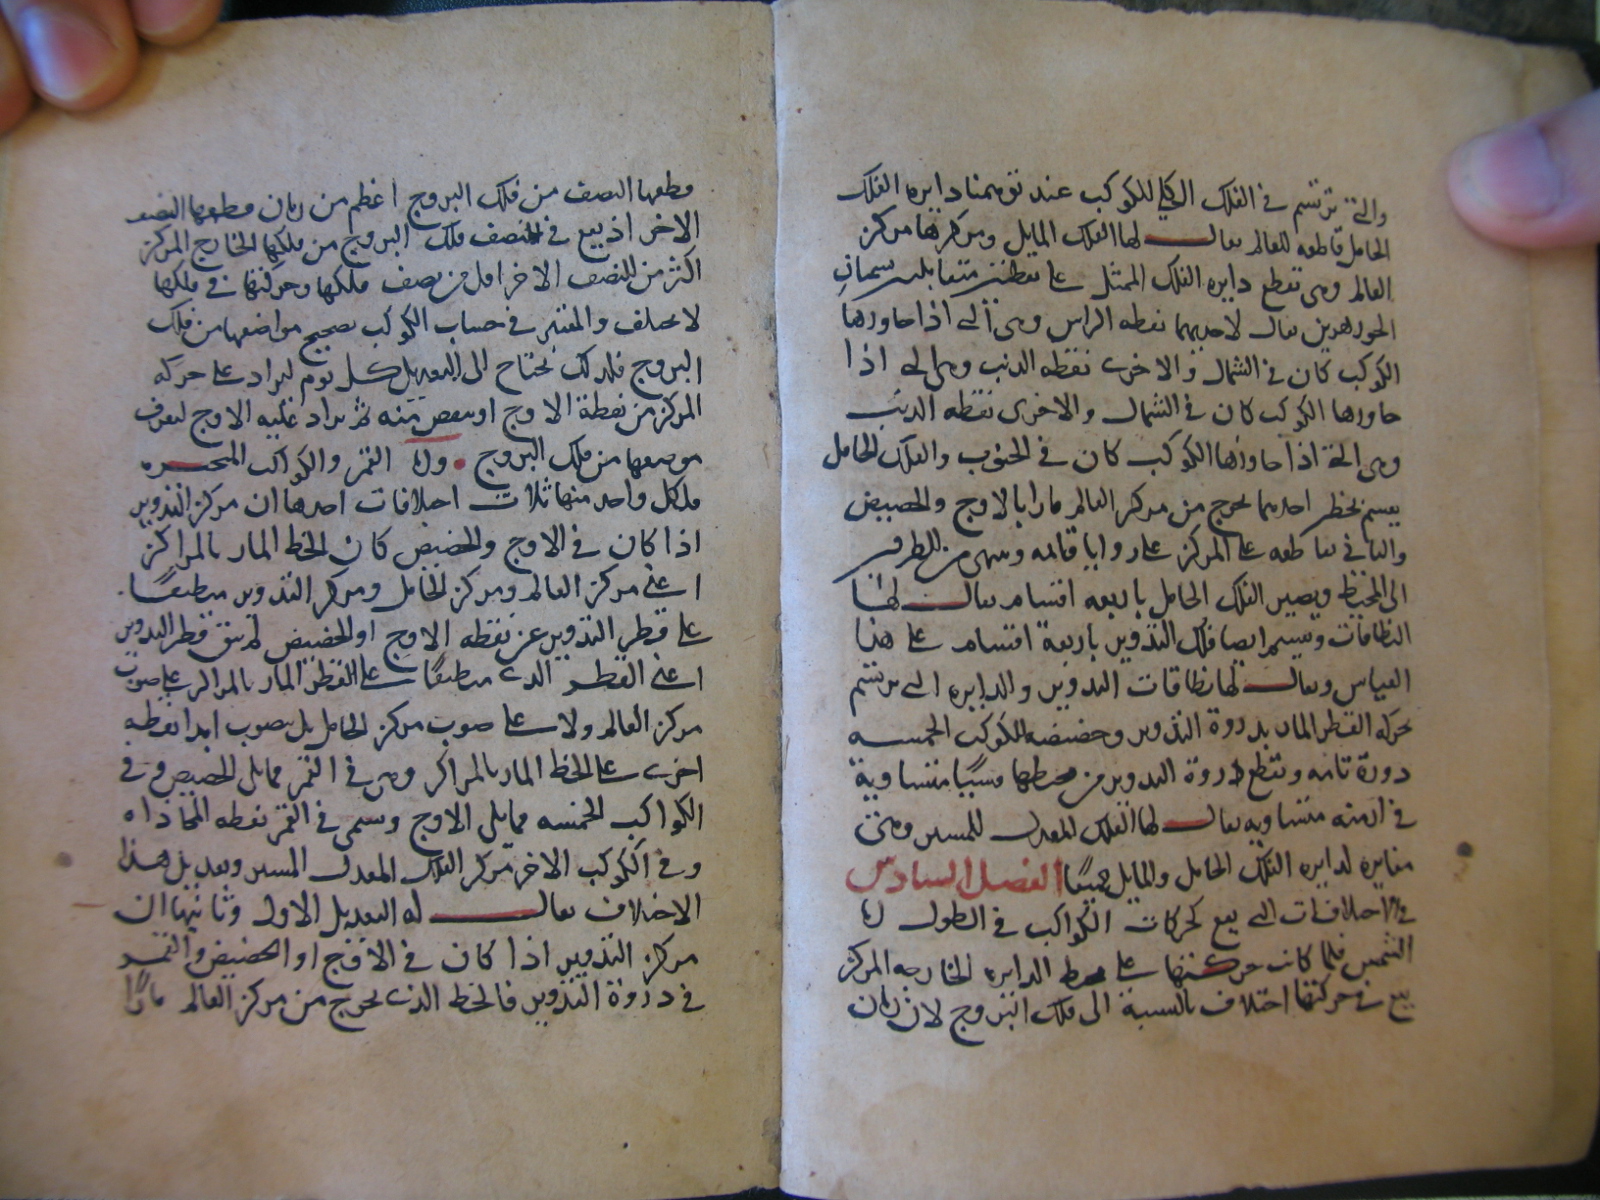 والتي ترتسم في الفلك الكلي للكوكب عند توهمنا دايره الفلك
الحامل قاطعه للعالم يقال لها الفلك المايل ومركزها مركز
العالم وهي تقطع دايره الفلك الممثل على نقطتين متقابلتين تسميان
الجوزهرين يقال لاحديهما نقطه الراس وهي التي اذا جاوزها
الكوكب كان في الشمال والاخرى نقطه الذنب وهي التي اذا
جاوزها الكوكب كان في الشمال والاخرى نقطه الذنب
وهي التي اذا جاوزها الكوكب كان في الجنوب والفلك الحامل
يقسم بخطين احديهما يخرج من مركز العالم مارا بالاوج والحضيض
والثاني يقاطعه على المركز على زوايا قايمه وينتهي من الطرفين
الى المحيط ويصير الفلك الحامل باربعه اقسام يقال لها
النطاقات وينقسم ايضا فلك التدوير باربعة اقسام على هذا
القياس ويقال لها نطاقات التدوير والدايره التي ترتسم
بحركه القطر المار بذروة التدوير وحضيضه للكوكب الخمسه
دورة تامه وتقطع ذروة التدوير من محيطها قسيا متساوية
في ازمنه متساويه يقال لها الفلك المعدل للمسير وهي
مغايره لدايره الفلك الحامل والمايل جميعا الفصل السادس
في اختلافات التي يقع لحركات الكواكب في الطول اما
الشمس فلما كانت حركتها على محيط الدايره الخارجه المركز
يقع في حركتها اختلاف بالنسبة الى فلك البروج لان زمان
قطعها النصف من فلك البروج اعظم من زمان قطعها النصف
الاخر اذ يقع في النصف فلك البروج من فلكها الخارج المركز
اكثر من النصف الاخر اقل من نصف فلكها وحركتها في فلكها
لا يختلف والمعتبر في حساب الكوكب تصحيح مواضعها من فلك
البروج فلذلك نحتاج الى التعديل كل يوم ليزاد على حركه
المركز من نقطة الاوج او ينقص منه ثم يزاد عليه الاوج ليعرف
موضعها من فلك البروج واما القمر والكواكب المتحيره
فلكل واحد منها ثلاث اختلافات احدها ان مركز التدوير
اذا كان في الاوج والحضيض كان الخط المار بالمراكز
اعني مركز العالم ومركز الحامل ومركز التدوير منطبقا
على قطر التدوير عن نقطه الاوج او الحضيض لم يبق قطر التدوير
اعني القطر الذي منطبقا على القطر المار بالمراكز على صوب
مركز العالم ولا على صوب مركز الحامل بل يصوب ابدا نقطه
اخرى على الخط المار بالمراكز وهي في القمر مما يلي الحضيض وفي
الكواكب الخمسه مما يلي الاوج وتسمى في القمر نقطه المحاذاه
وفي الكوكب الاخر مركز الفلك المعدل المسير وتعديل هذا
الاختلاف يقال له التعديل الاول وثانيها ان
مركز التدوير اذا كان في الاوج او الحضيض والقمر
في ذروة التدوير فالخط الذي يخرج من مركز العالم مارا